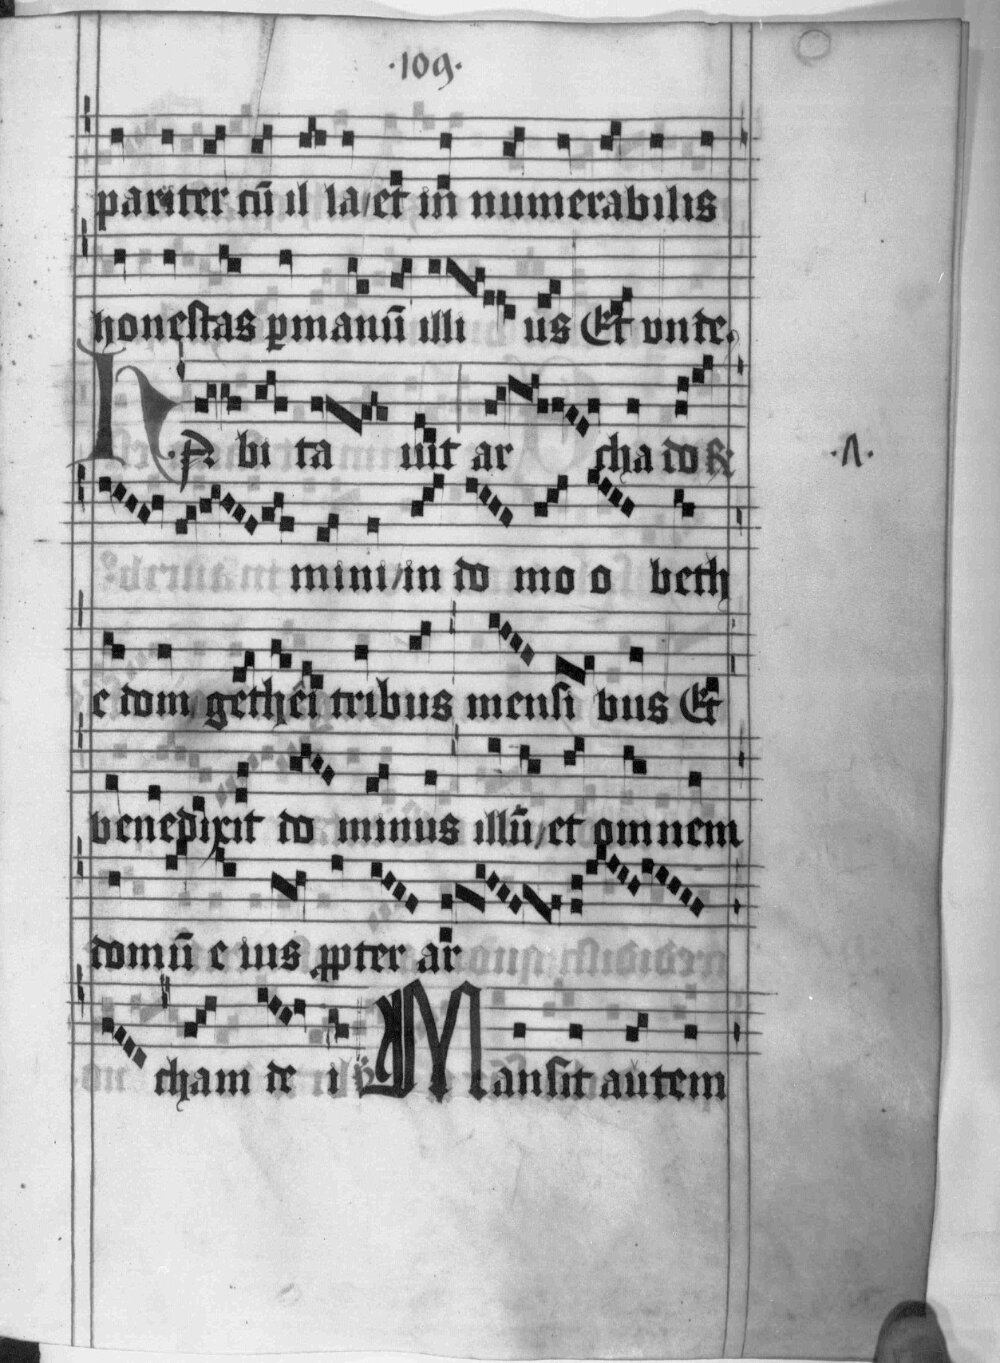 ·109·
pariter cū il la/et in numerabilis
honestas p manū illi us Et vnde.
H·P· bi ta uit ar cha do R
·Λ·
mini/in do mo o beth
e dom gethei tribus mensi bus Et
benedixit do minus illū/et omnem
domū e ius ppter ar
cham de i V Mansit autem